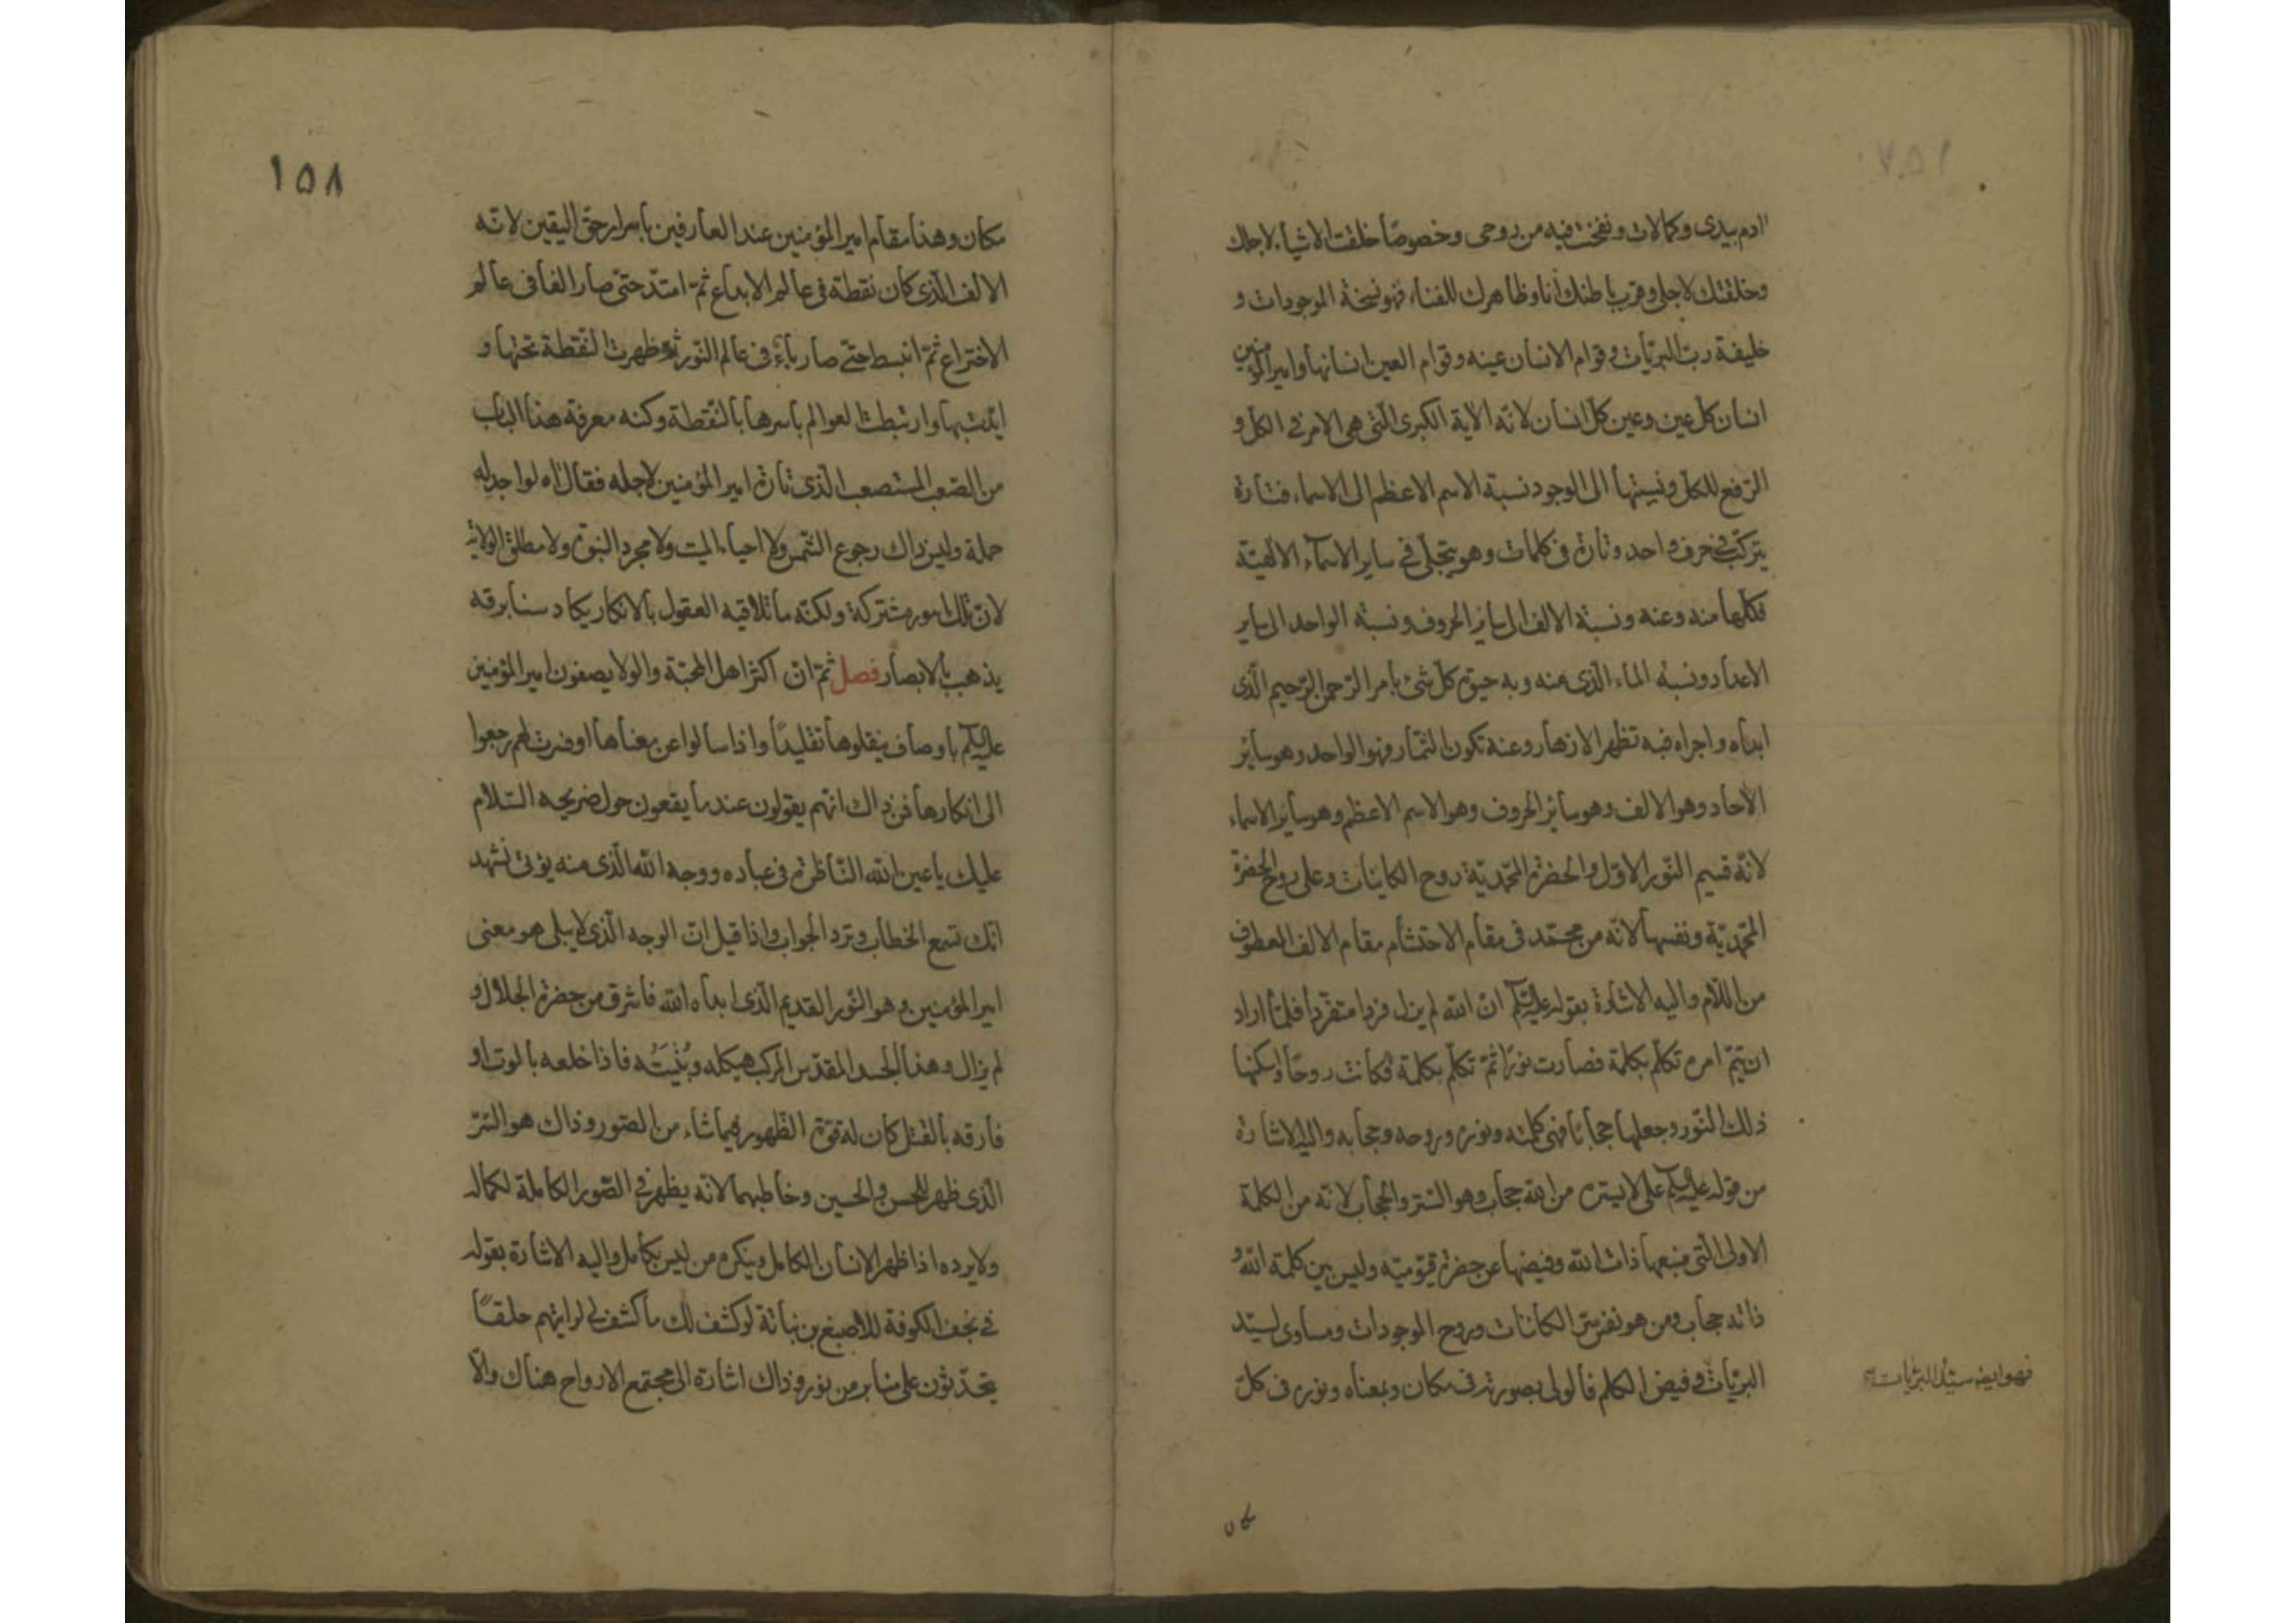 ١٥٧
ادم بيدى وكمالات ونفخت فيه من روحى وخصوصًا خلقت الاشياء لاجلك
وخلقتك لاجلى وقرب باطنك انا وظاهرك للفناء فهو نسخة الموجودات و
خليفة رب البريّات وقوام الانسان عينه وقوام العين انسانها وامير المؤمنين
انسان كل عين وعين كل انسان لانّه الآية الكبرى الّتى هى الامر فى الكلّ و
الرّفع للكلّ ونسبتها الى الوجود نسبة الاسم الاعظم الى الاسماء فتارة
يتركّب فى حرف واحد وتارة فى كلمات وهو يتجلّى فى ساير الاسماء الالهيّة
فكلّها منه وعنه ونسبة الالف الى ساير الحروف ونسبة الواحد الى ساير
الاعداد ونسبة الماء الّذى منه وبه حيوة كلّ شئ بامر الرّحمن الرّحيم الّذى
ابداه واجراه فبه تظهر الازهار وعنه تكون الثمار فهو الواحد وهو سائر
الآحاد وهو الالف وهو سائر الحروف وهو الاسم الاعظم وهو سائر الاسماء
لانّه قسيم النّور الاوّل والحضرة المحمّديّة روح الكاينات وعلى روح الحضرة
المحمّديّة ونفسها لانّه من محمّد فى مقام الاحتشام مقام الالف المعطوف
من اللّام واليه الاشارة بقوله عليه السلام انّ الله لم يزل فردا متفرّدا فلمّا اراد
ان يتمّ امره تكلّم بكلمة فصارت نورًا ثمّ تكلّم بكلمة فكانت روحًا واسكنها
ذلك النّور وجعلها حجابًا فهى كلمته ونوره وروحه وحجابه واليه الاشارة
من قوله عليه السلام على لا يستره من الله حجاب وهو الستر والحجاب لانّه من الكلمة
الاولى الّتى منبعها ذات الله وفيضها عن حضرة قيّوميّه وليس بين كلمة الله و
ذاته حجاب ومن هو نفس سرّ الكائنات وروح الموجودات ومساوى لسيّد
البريّات وفيض الكلم فالولى بصورته فى مكان وبمعناه ونوره فى كلّ
فهو ايضا سيّد البريّات
مكان
١٥٨
مكان وهذا مقام امير المؤمنين عند العارفين باسرار حقّ اليقين لانّه
الالف الّذى كان نقطة فى عالم الابداع ثمّ امتدّ حتّى صار الفا فى عالم
الاختراع ثمّ انبسط حتى صار باءً فى عالم النّور وظهرت النّقطة تحتها و
ايّدت بها وارتبطت العوالم باسرها بالنّقطة وكنه معرفة هذا الباب
من الصّعب المستصعب الّذى تاوّه امير المؤمنين لاجله فقال اه لو اجد له
حملة وليس ذاك رجوع الشّمس ولا احياء الميت ولا مجرد النبوّة ولا مطلق الولاية
لانّ تلك امور مشتركة ولكنّه ما تلاقيه العقول بالانكار يكاد سنا برقه
يذهب بالابصار فصل ثمّ انّ اكثر اهل المحبّة والولا يصفون امير المؤمنين
عليه السلام باوصاف ينقلوها تقليدًا واذا سالوا عن معناها او فسرت لهم رجعوا
الى انكارها فمن ذاك انّهم يقولون عند ما يقعون حول ضريحه السّلام
عليك يا عين الله النّاظرة فى عباده ووجه الله الّذى منه يؤتى نشهد
انّك تسمع الخطاب وترد الجواب واذا قيل انّ الوجه الّذى لا يبلى هو معنى
امير المؤمنين وهو النّور القديم الّذى ابداه الله فاشرق من حضرة الجلال و
لم يزال وهذا الجسد المقدّس المركب هيكله وبُنْيَتُه فاذا خلعه بالموت او
فارقه بالقتل كان له قوّة الظّهور فيما شاء من الصّور وذاك هو السّرّ
الّذى ظهر للحسن والحسين وخاطبهما لانّه يظهر فى الصّور الكاملة لكماله
ولا يرده اذا ظهر الانسان الكامل وينكره من ليس بكامل واليه الاشارة بقوله
فى نجف الكوفة للاصبغ بن نباتة لو كشف لك ما كشف لى لرايتهم حلقًا
يتحدّثون على منابر من نور وذاك اشارة الى مجتمع الارواح هناك والّا